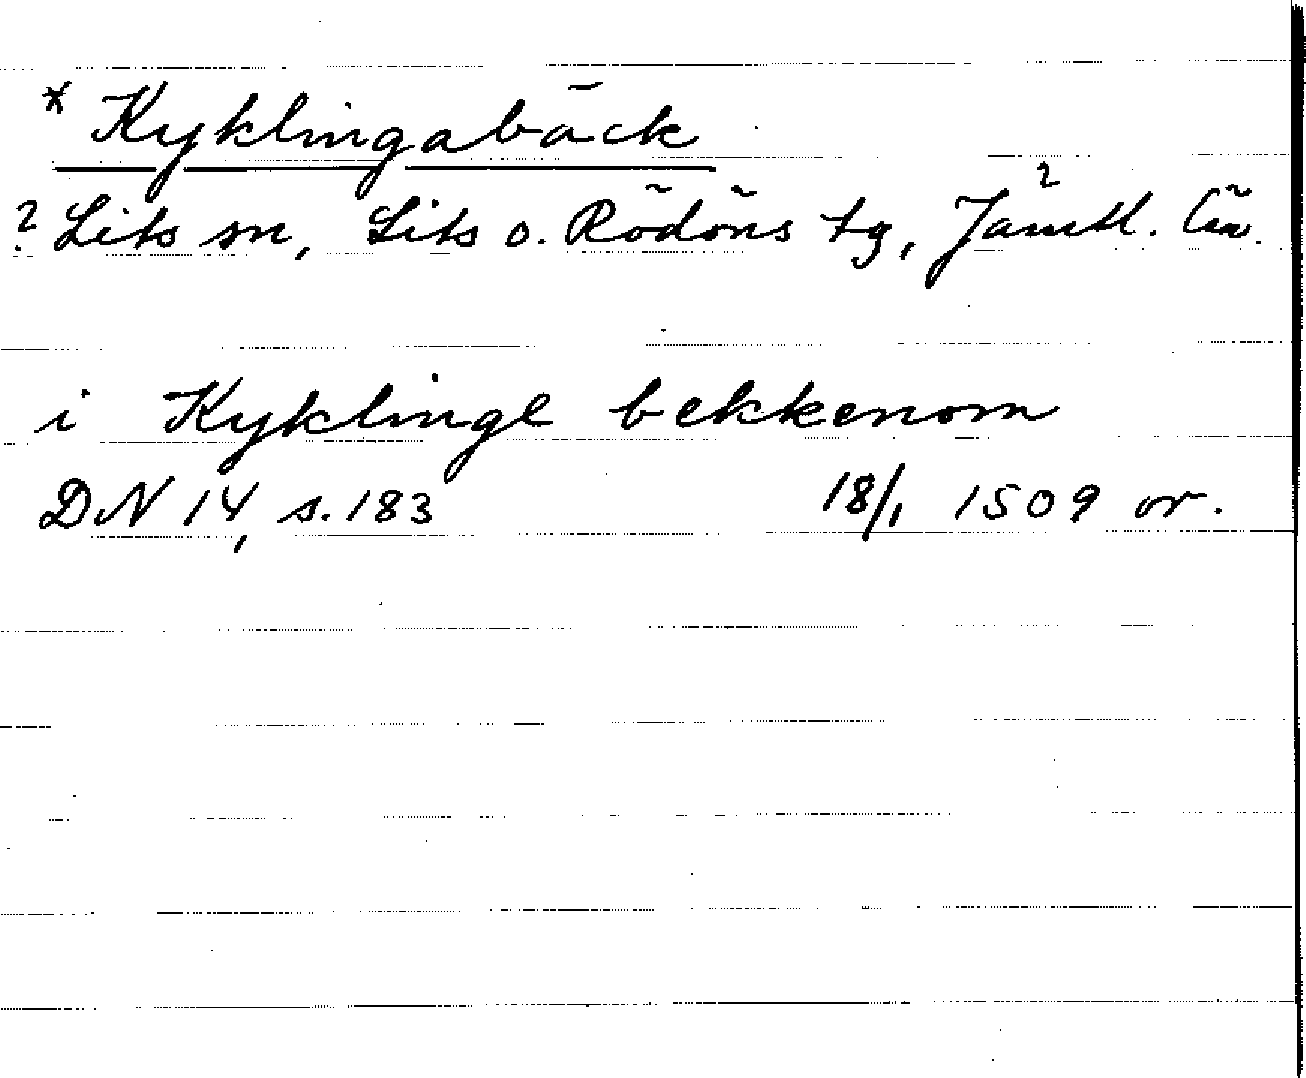 * Kyklingabäck
? Lits sn, Lits o. Rödöns tg, Jämtl. län.
i Kyklinge bekkenom
DN 14, s. 183 18/1 1509 or.